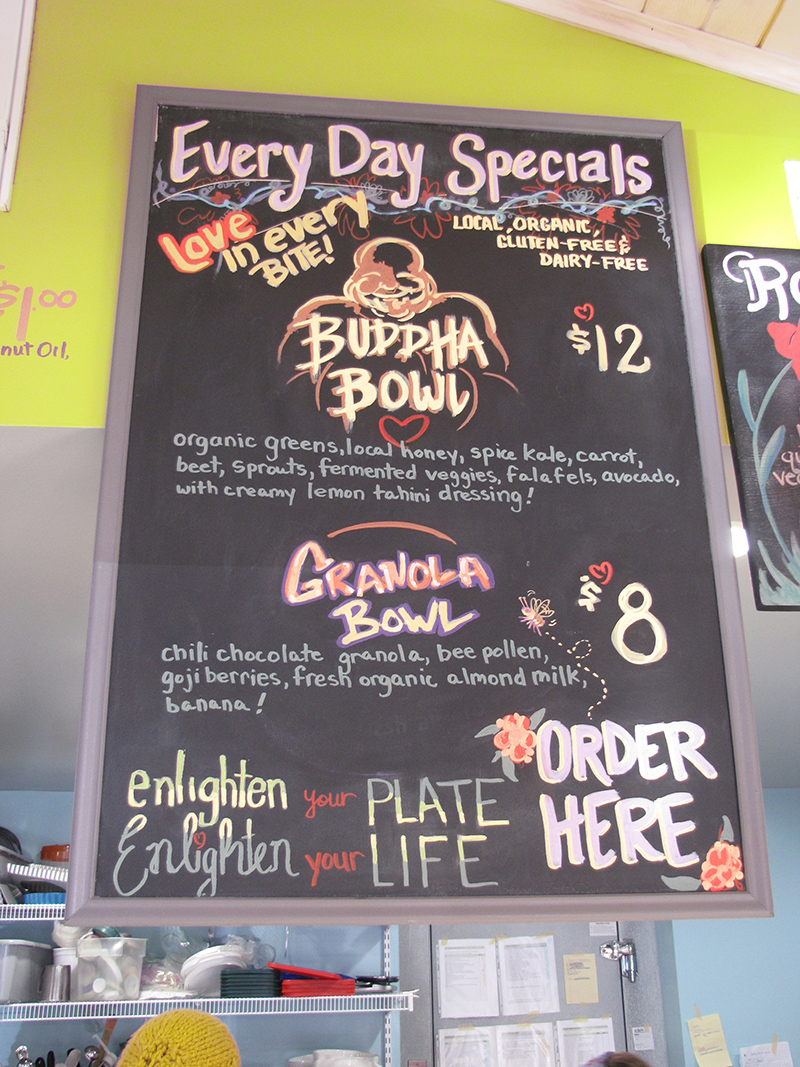 Every Day Specials
Love in every BITE!
LOCAL, ORGANIC,
GLUTEN-FREE &
DAIRY-FREE
BUDDHA
BOWL
$12
organic greens, local honey, spice kale, carrot,
beet, sprouts, fermented veggies, falafels, avocado,
with creamy lemon tahini dressing!
GRANOLA
BOWL
$8
chili chocolate granola, bee pollen,
goji berries, fresh organic almond milk,
banana!
enlighten your PLATE
Enlighten your LIFE
ORDER
HERE
$1.00
nut Oil,